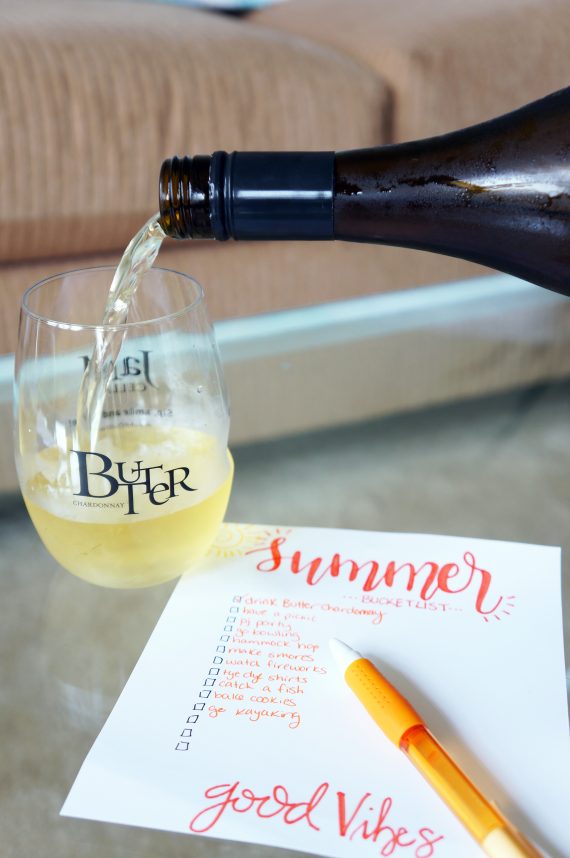 Sip, smile and
BUTTER
CHARDONNAY
summer
... BUCKET LIST ...
drink Butter Chardonnay
have a picnic
pj party
go bowling
hammock hop
make smores
watch fireworks
tye dye shirts
catch a fish
bake cookies
go kayaking
good Vibes